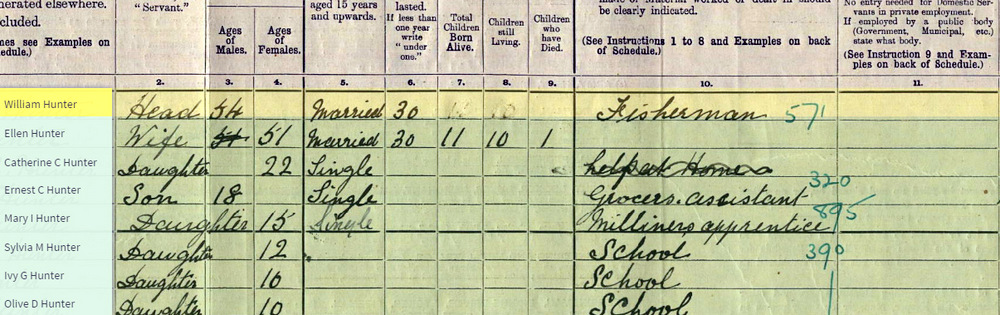 nerated elsewhere.
cluded.
mes see Examples on
edule.)
"Servant."
Ages
of
Males.
Ages
of
Females.
aged 15 years
and upwards.
lasted.
If less than
one year
write
"under
one."
Total
Children
Born
Alive.
Children
still
Living.
Children
who
have
Died.
be clearly indicated.
(See Instructions 1 to 8 and Examples on back
of Schedule.)
No entry needed for Domestic Ser-
vants in private employment.
If employed by a public body
(Government, Municipal, etc.)
state what body.
(See Instruction 9 and Exam-
ples on back of Schedule.)
2. 3. 4. 5. 6. 7. 8. 9. 10. 11.
William Hunter Head 54 Married 30 Fisherman 571
Ellen Hunter Wife 51 51 Married 30 11 10 1
Catherine C Hunter Daughter 22 Single help at Home
Ernest C Hunter Son 18 Single Grocers assistant 320
Mary I Hunter Daughter 15 Single Milliners apprentice 895
Sylvia M Hunter Daughter 12 School 390
Ivy G Hunter Daughter 10 School
Olive D Hunter Daughter 10 School